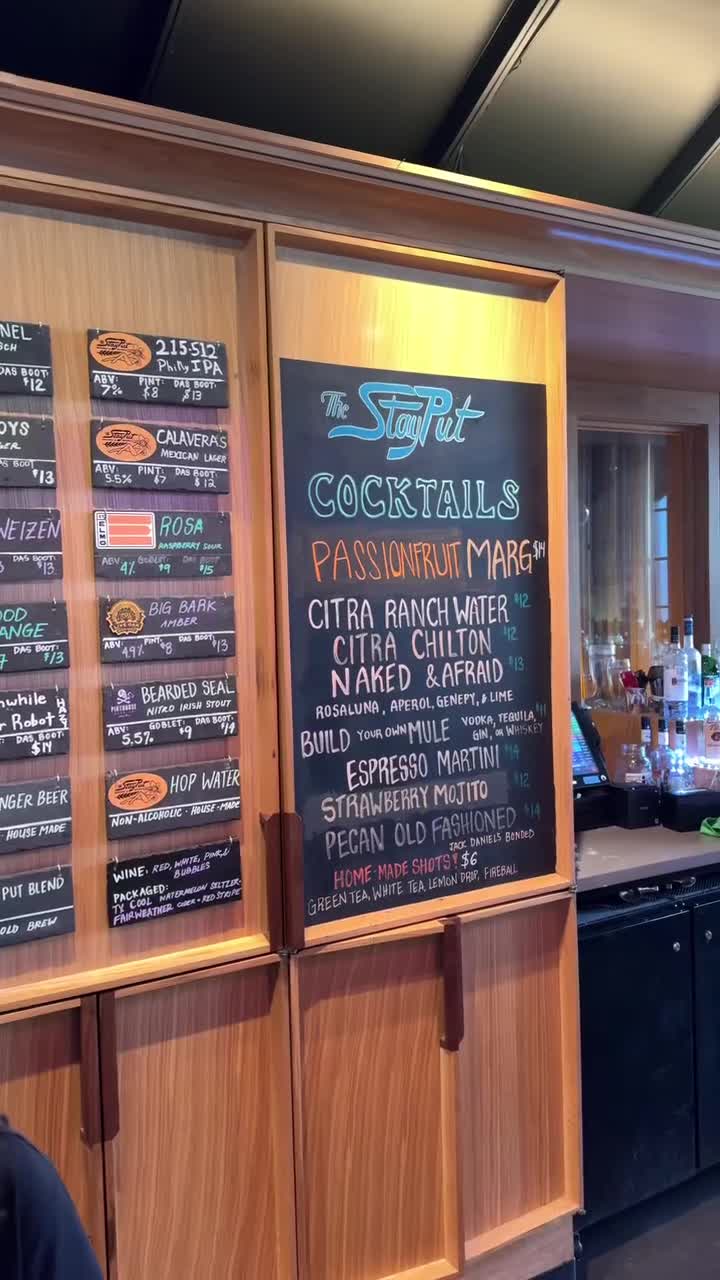 NEL
SCH
$12
OYS
GER
AS BOOT:
$13
WEIZEN
DAS BOOT:
$13
OOD
ANGE
DAS BOOT:
7 $13
nwhile
r Robot
DAS BOOT:
$14
NGER BEER
HOUSE MADE
PUT BLEND
OLD BREW
The StayPut
215-512
Philly IPA
ABV: PINT: DAS BOOT:
7% $8 $13
The StayPut
CALAVERAS
MEXICAN LAGER
ABV: PINT: DAS BOOT:
5.5% $7 $12
ST. ELMO
ROSA
RASPBERRY SOUR
ABV: GOBLET: DAS BOOT:
4% $9 $15
LIVE OAK
BIG BARK
AMBER
ABV: PINT: DAS BOOT:
4.9% $8 $13
PINTHOUSE
BEARDED SEAL
NITRO IRISH STOUT
ABV: GOBLET: DAS BOOT:
5.5% $9 $14
The StayPut
HOP WATER
NON-ALCOHOLIC · HOUSE-MADE
WINE: RED, WHITE, PINK, &
BUBBLES
PACKAGED:
TX COOL WATERMELON SELTZER
FAIRWEATHER CIDER · RED STRIPE
The StayPut
COCKTAILS
PASSIONFRUIT MARG $14
CITRA RANCH WATER $12
CITRA CHILTON $12
NAKED & AFRAID $13
ROSALUNA, APEROL, GENEPY, & LIME
BUILD YOUR OWN MULE VODKA, TEQUILA, GIN, OR WHISKEY $11
ESPRESSO MARTINI $14
STRAWBERRY MOJITO $12
PECAN OLD FASHIONED $14
JACK DANIELS BONDED
HOME-MADE SHOTS! $6
GREEN TEA, WHITE TEA, LEMON DROP, FIREBALL